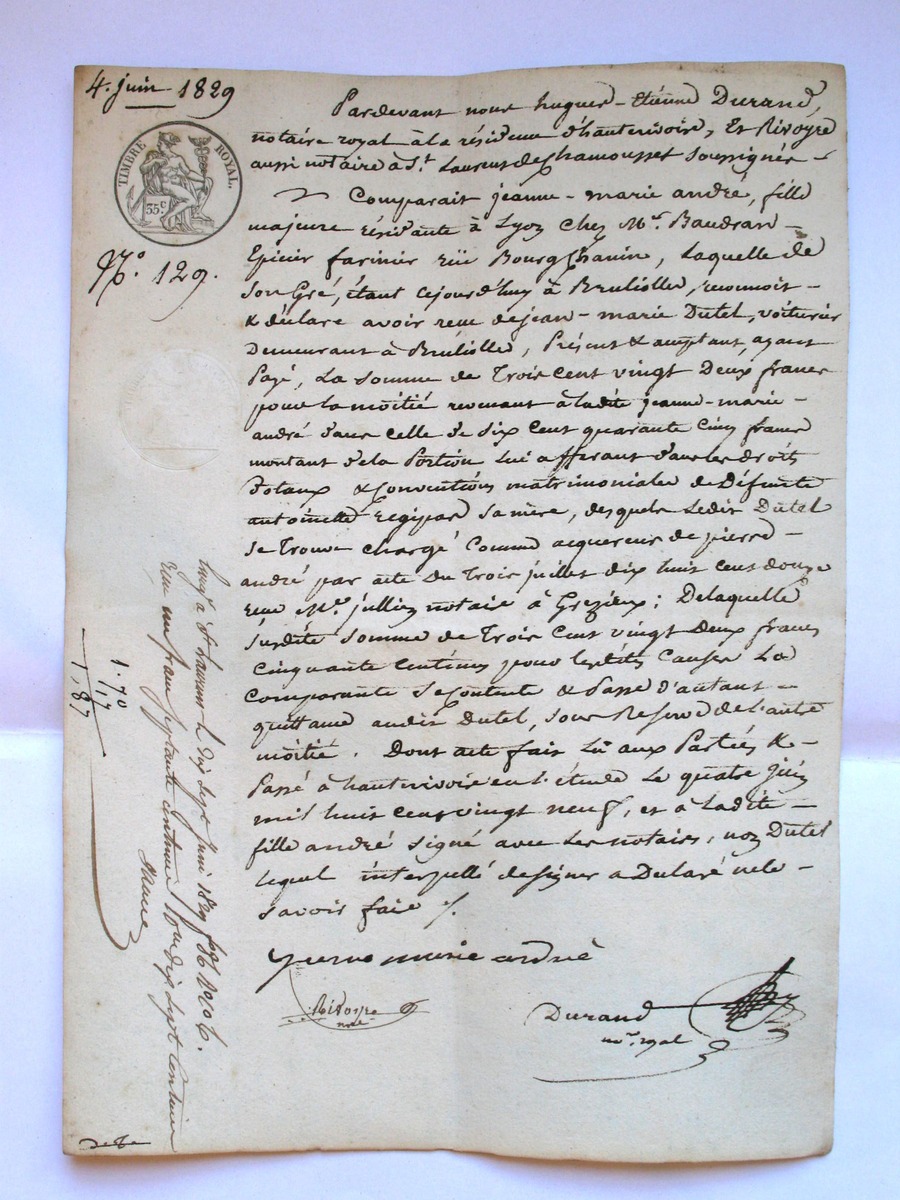 4. juin 1829
TIMBRE ROYAL.
35c
N.º 129.
Pardevant nous hugues-étienne Durand,
notaire royal à la résidence d'hauterivoire, Et Rivoyre
aussi notaire à St. Laurent de Chamousset Soussignés
Comparait jeanne-marie andré, fille
majeure résidante à Lyon chez Mr. Baudran
Epicier farinier rüe Bourgchanin, Laquelle de
son Gré, étant cejourd'huy à Bruliolle, reconnoit
& déclare avoir reçu de jean-marie Dutel, voiturier
Demeurant à Bruliolle, Présent & acceptant, ayant
Payé, La somme de Trois cent vingt Deux francs
pour la moitié revenant à ladite jeanne-marie
andré dans celle de six cent quarante cinq francs
montant de la Portion lui afférant dans les droits
dotaux & Conventions matrimoniales de Défunte
antoinette sa mère, desquels Ledit Dutel
se Trouve chargé Comme acquéreur de pierre
andré par acte Du Trois juillet dix huit cent douze
reçu Me. jullien notaire à Grézieux; De laquelle
susdite somme de Trois cent vingt Deux francs
Cinquante Centimes pour lesdites causes La
comparante se contente & Passe d'autant
quittance audit Dutel, sous Reserve de l'autre
moitié. Dont acte fait Lû aux Parties &
Passé à hauterivoire en l'étude Le quatre juin
mil huit cent vingt neuf, et à Ladite
fille andré signé avec Les notaires, non Dutel
lequel interpellé de signer a Déclaré ne le
savoir faire /.
marie andré
Rivoyre
nre
Durand
nore. royal
Enrgé à St Laurent le Dix Sept Juin 1829
reçu un franc soixante centimes Dix Sept Centimes
1.70
17
1,87